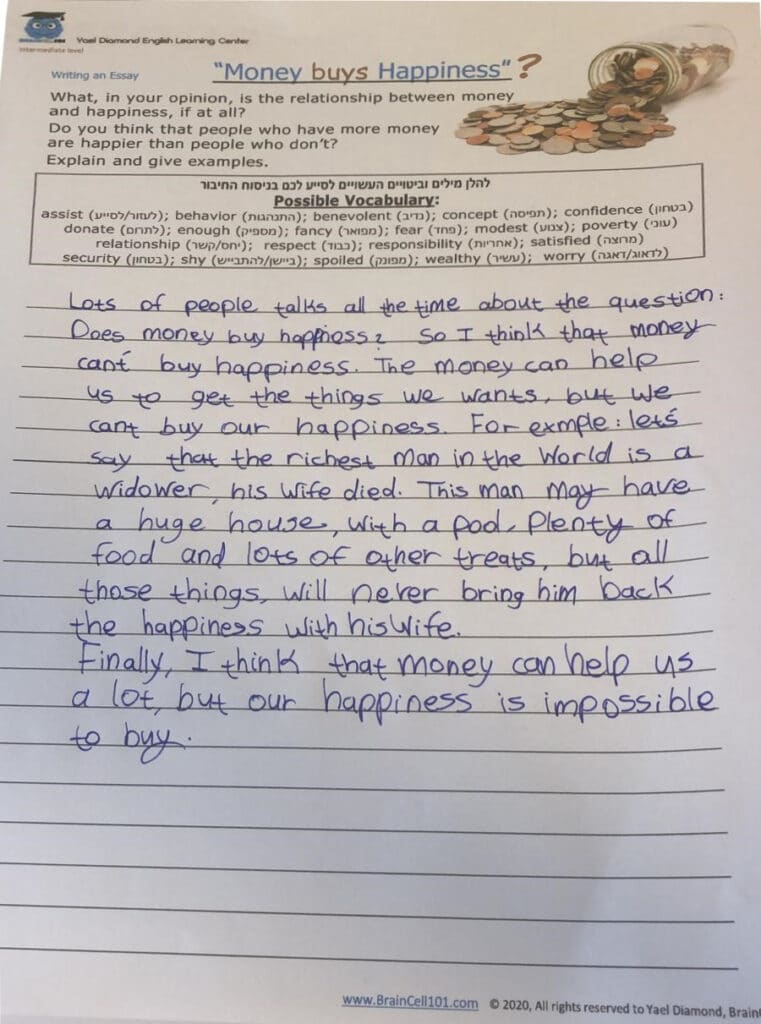 BRAINCELL101 Yael Diamond English Learning Center
Intermediate level
Writing an Essay "Money buys Happiness"?
What, in your opinion, is the relationship between money
and happiness, if at all?
Do you think that people who have more money
are happier than people who don't?
Explain and give examples.
להלן מילים וביטויים העשויים לסייע לכם בניסוח החיבור
Possible Vocabulary:
assist (לעזור/לסייע); behavior (התנהגות); benevolent (נדיב); concept (תפיסה); confidence (בטחון)
donate (לתרום); enough (מספיק); fancy (מפואר); fear (פחד); modest (צנוע); poverty (עוני)
relationship (יחס/קשר); respect (כבוד); responsibility (אחריות); satisfied (מרוצה)
security (בטחון); shy (ביישן/להתבייש); spoiled (מפונק); wealthy (עשיר); worry (לדאוג/דאגה)
Lots of people talks all the time about the question:
Does money buy happiness? So I think that money
can't buy happiness. The money can help
us to get the things we wants, but we
cant buy our happiness. For exmple: let's
say that the richest man in the world is a
widower, his wife died. This man may have
a huge house, with a pool, plenty of
food and lots of other treats, but all
those things, will never bring him back
the happiness with his wife.
Finally, I think that money can help us
a lot, but our happiness is impossible
to buy.
www.BrainCell101.com © 2020, All rights reserved to Yael Diamond, Brain